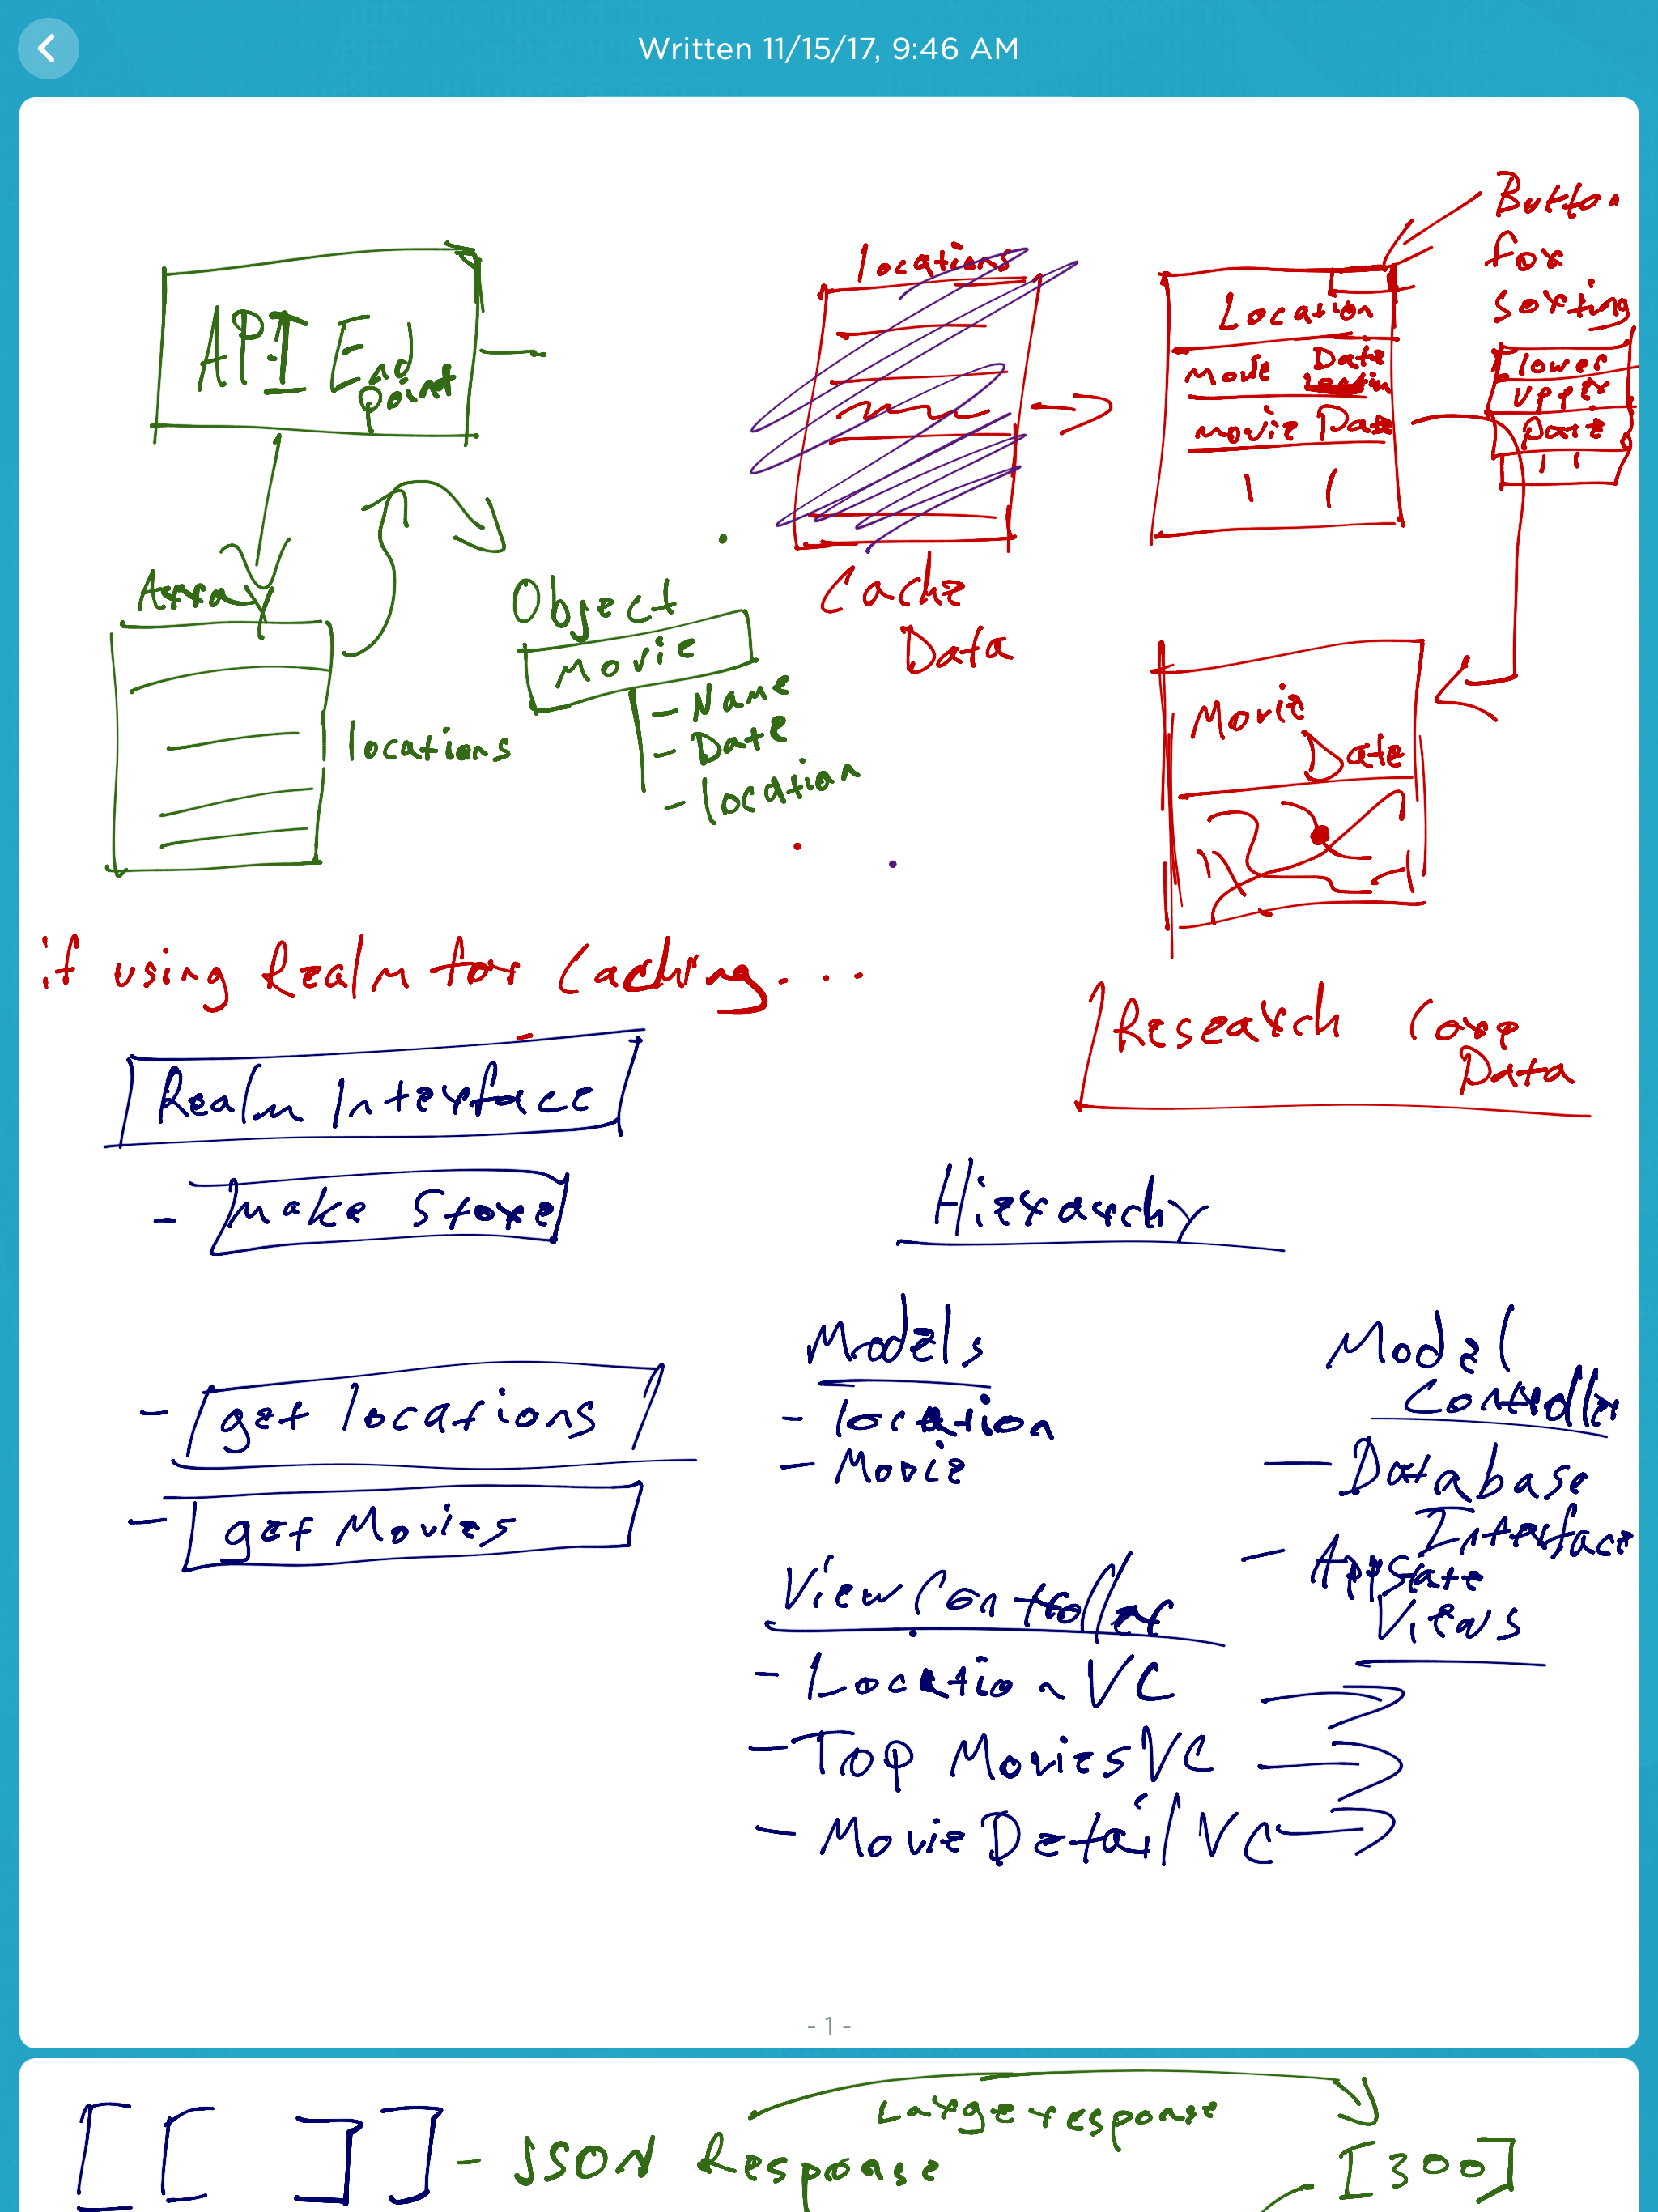 Written 11/15/17, 9:46 AM
API End
Point
Array
locations
Object
Movie
- Name
- Date
- location
locations
Cache
Data
Button
for
sorting
Location
Movie Date
Movie Date
lower
upper
Date
Movie
Date
if using Realm for Caching...
Research Core
Data
Realm Interface
- Make Store
- get locations
- get Movies
Hierarchy
Models
- location
- Movie
Model
Controller
- Database
Interface
- AppState
View Controller
- Location VC
- Top Movies VC
- Movie Detail VC
Views
- 1 -
[[ ]] - JSON Response
Large response
[300]